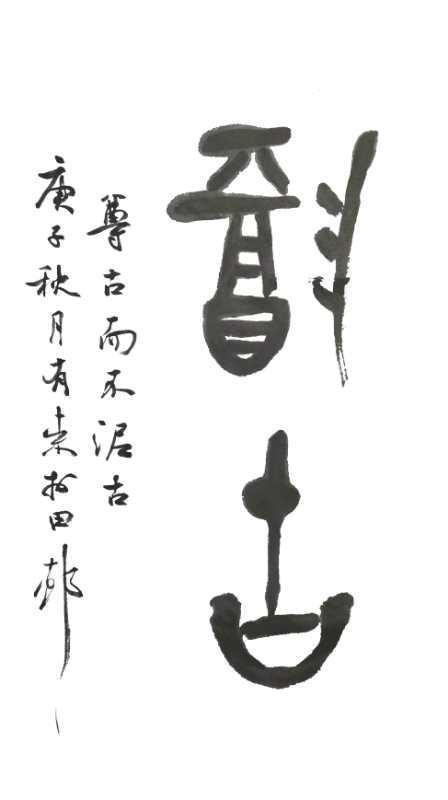 古
尊古而不泥古
庚子秋月有 於田邨